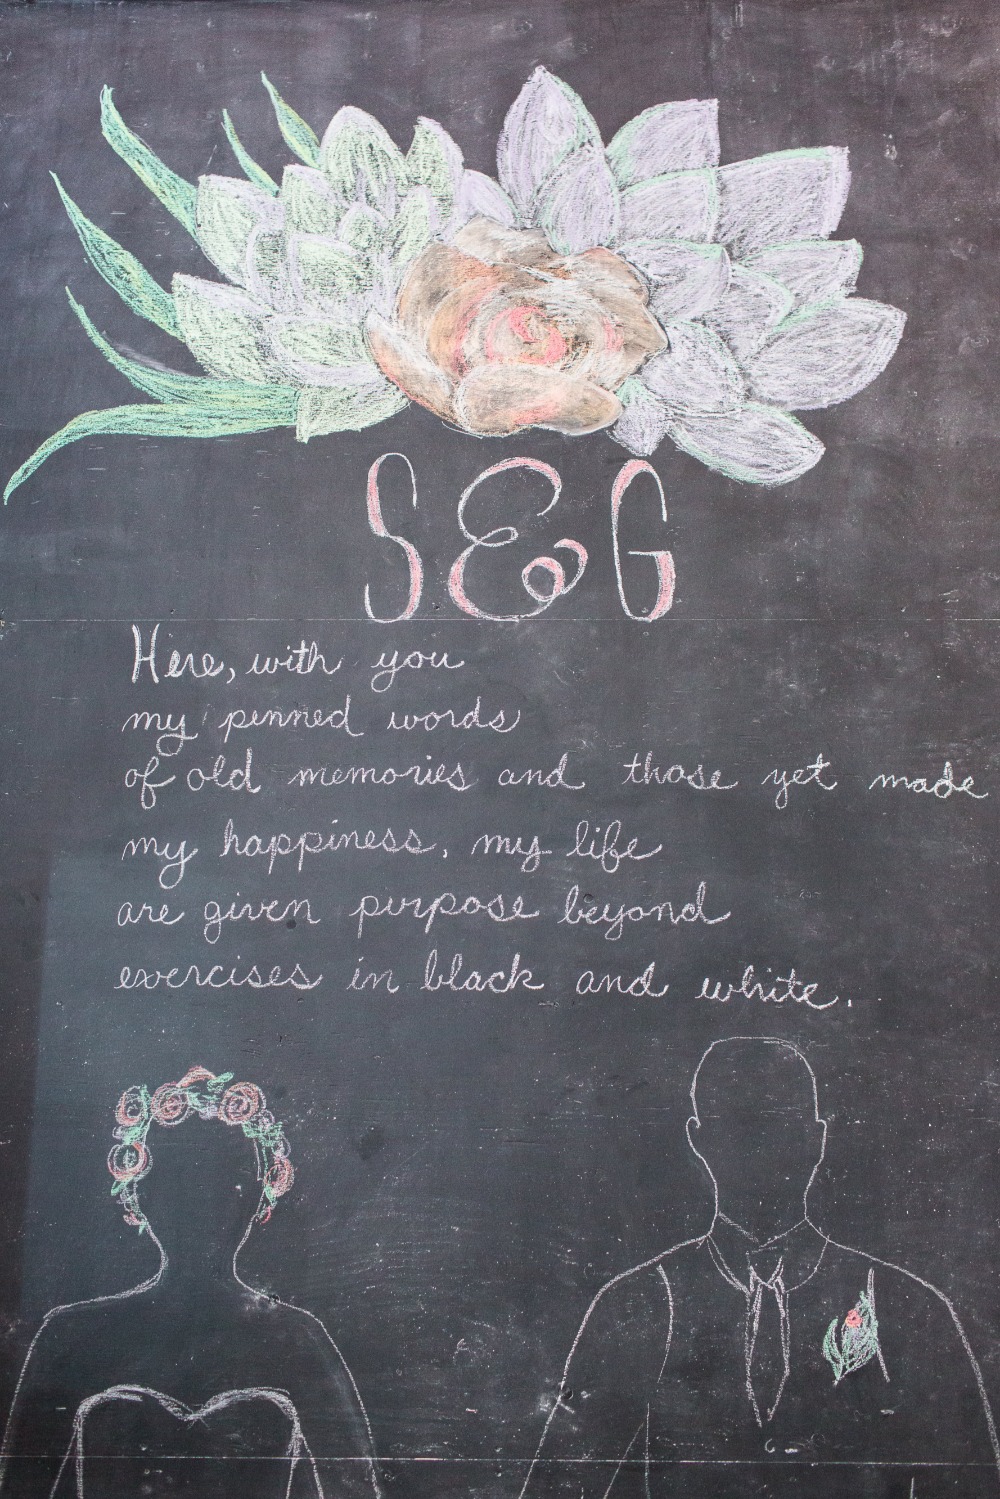 S & G
Here, with you
my penned words
of old memories and those yet made
my happiness, my life
are given purpose beyond
exercises in black and white.